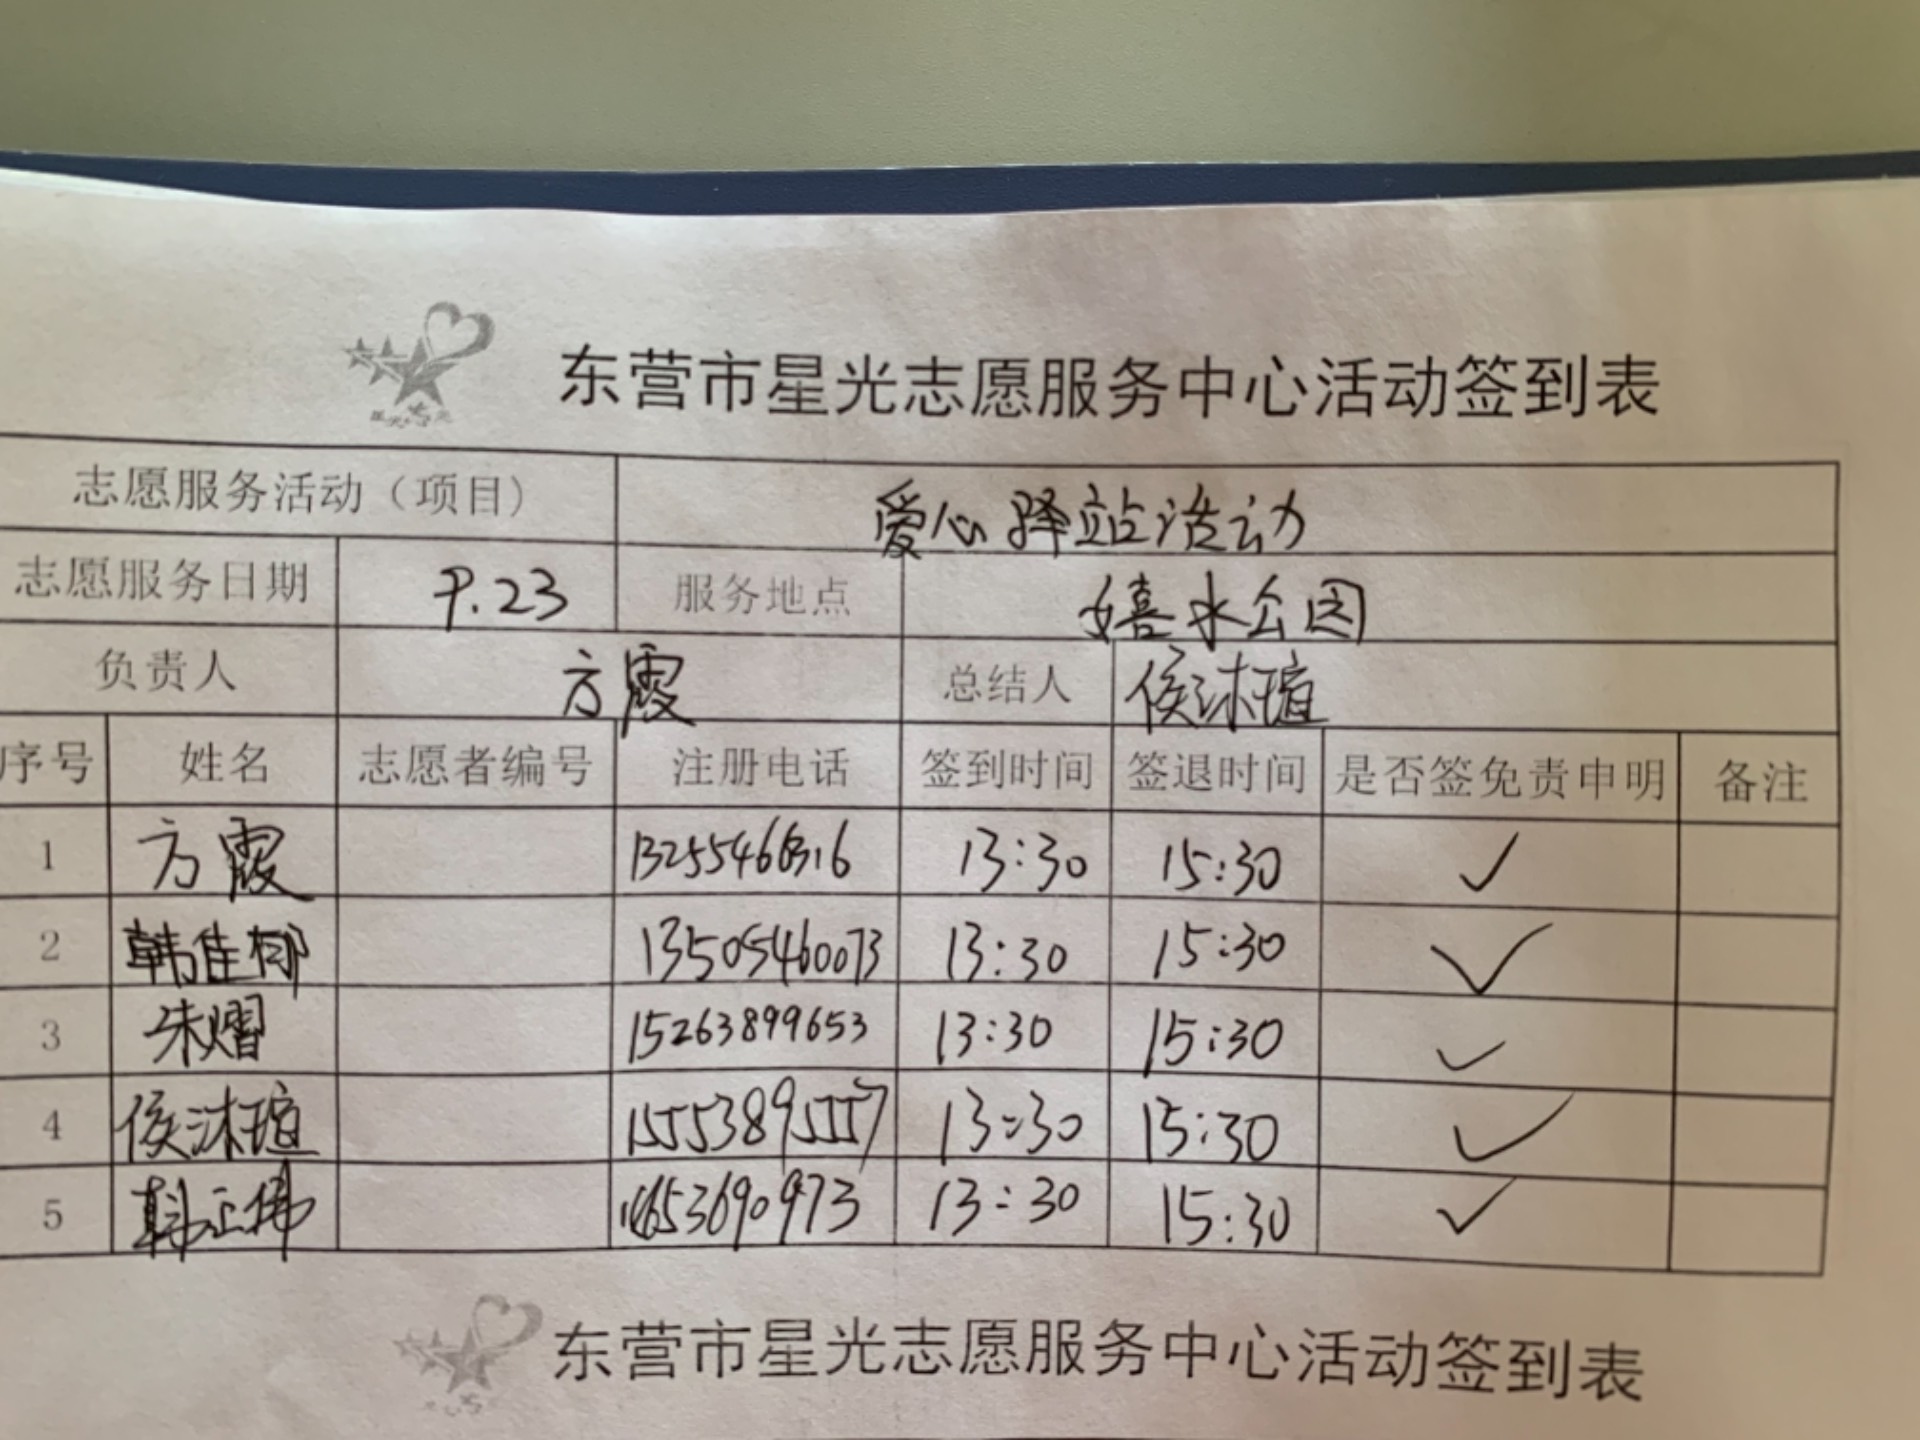 东营市星光志愿服务中心活动签到表
志愿服务活动（项目） 爱心驿站活动
志愿服务日期 9.23 服务地点 嬉水公园
负责人 方霞 总结人 侯沐瑄
序号 姓名 志愿者编号 注册电话 签到时间 签退时间 是否签免责申明 备注
1 方霞 13:30 15:30 ✓
2 韩佳郁 13505460073 13:30 15:30 ✓
3 朱熠 15263899653 13:30 15:30 ✓
4 侯沐瑄 15553895557 13:30 15:30 ✓
5 13:30 15:30 ✓
东营市星光志愿服务中心活动签到表